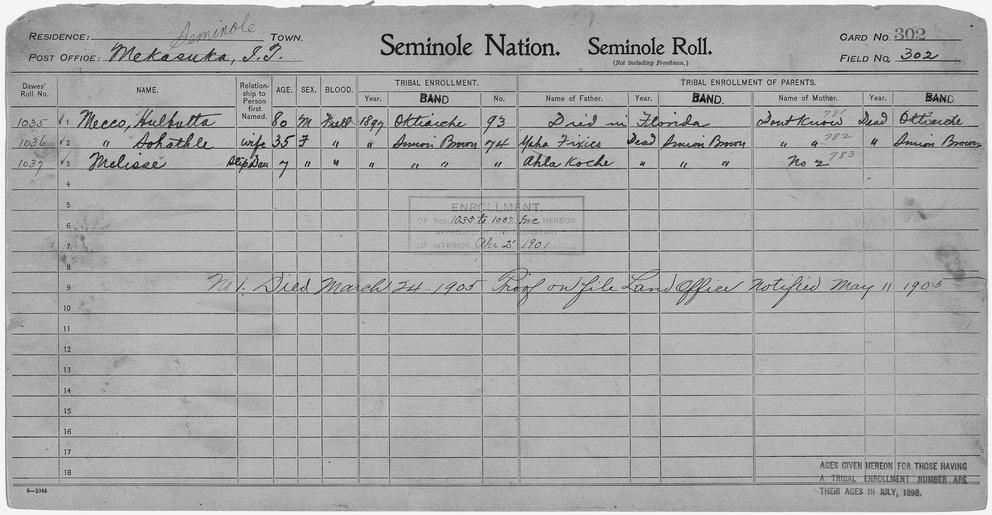 RESIDENCE: Seminole TOWN. Seminole Nation. Seminole Roll. CARD NO. 302
POST OFFICE: Mekasuka, I.T. (Not including Freedmen.) FIELD NO. 302
Dawes' Roll No. NAME. Relationship to Person first Named. AGE. SEX. BLOOD. TRIBAL ENROLLMENT. TRIBAL ENROLLMENT OF PARENTS.
Year. BAND No. Name of Father. Year. BAND. Name of Mother. Year. BAND
1035 1 Mecco, Hulbutta 80 M Full 1897 Ottiarche 93 Died in Florida Dont Know 781 Dead Ottiarche
1036 2 " Sohathle wife 35 F " " Simion Brown 74 Ypha Fixico Dead Simion Brown " " 782 " Simion Brown
1037 3 Melisse Step Dau 7 " " " " " " " Ahla Koche " " " No 2 783
4
5
ENROLLMENT
6 OF Nos. 1035 to 1037 Inc HEREON
APPROVED BY THE SECRETARY
7 OF INTERIOR Apr 2" 1901
8
9 No 1. Died March 24-1905 Proof on file Land Office Notified May 11 1905
10
11
12
13
14
15
16
17
18
AGES GIVEN HEREON FOR THOSE HAVING
A TRIBAL ENROLLMENT NUMBER ARE
THEIR AGES IN JULY, 1898.
6—1044